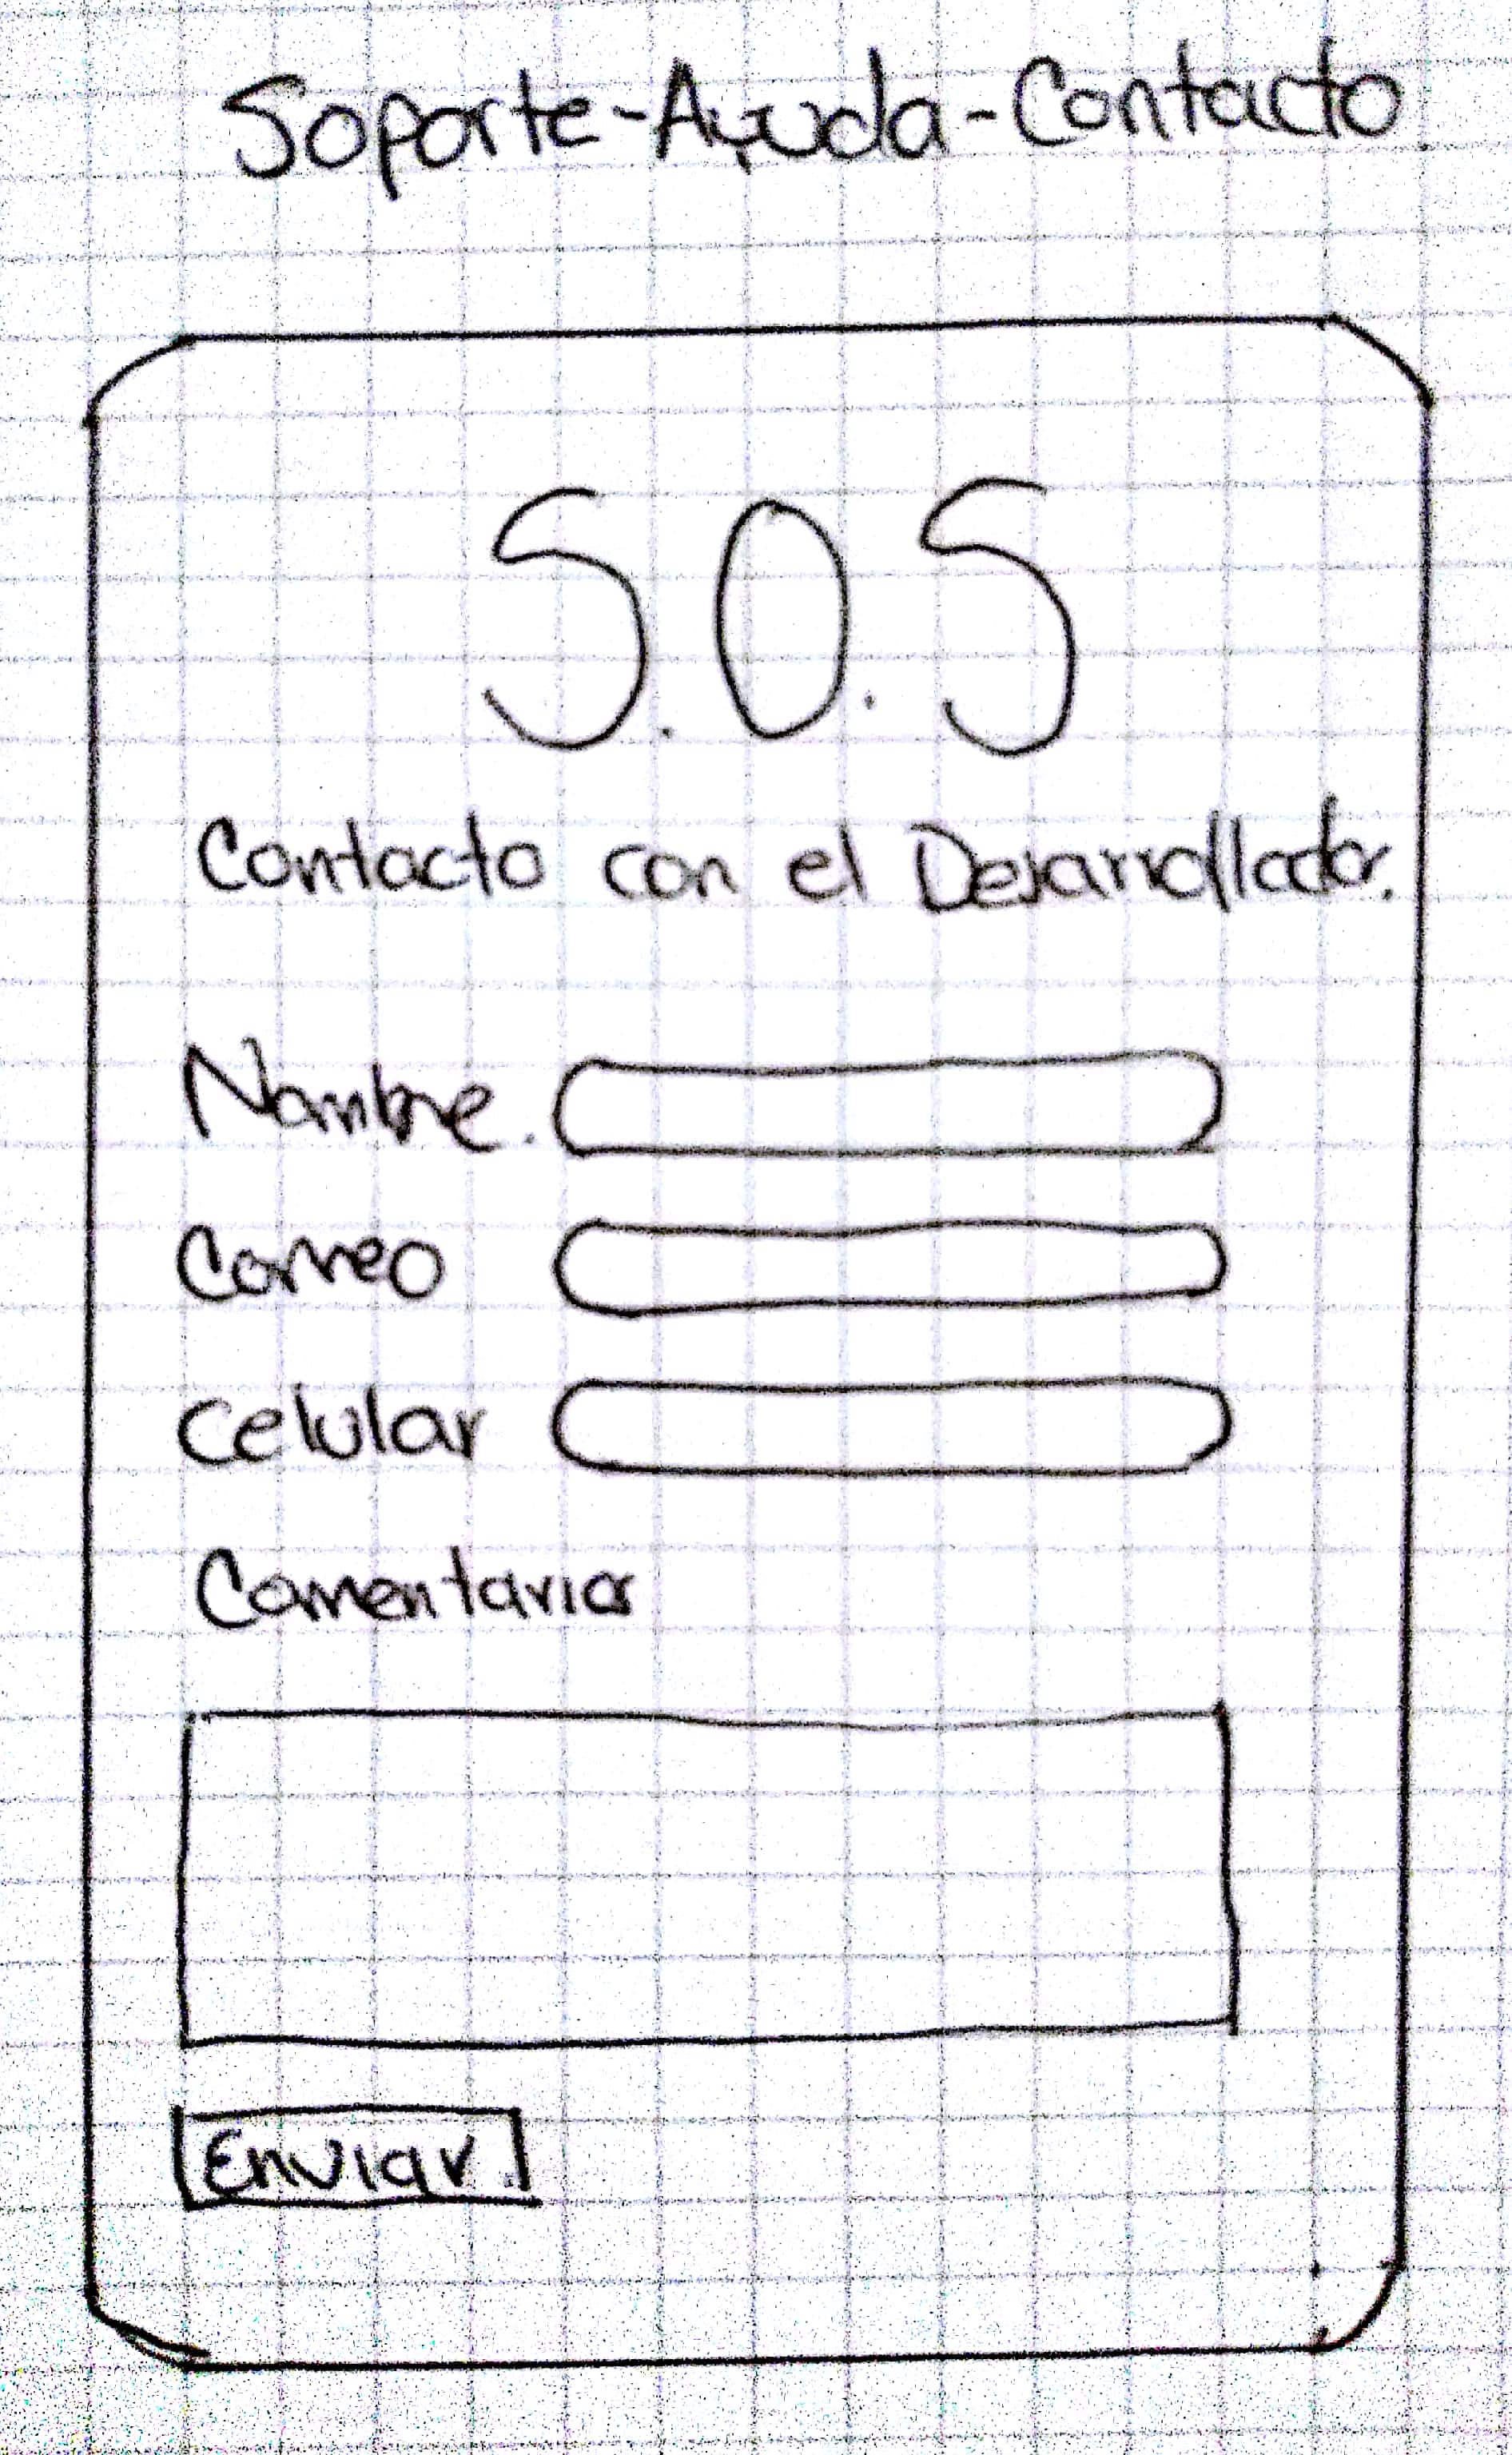 Soporte-Ayuda-Contacto
S.O.S
Contacto con el Desarrollador.
Nombre.
Correo
Celular
Comentarios
Enviar.